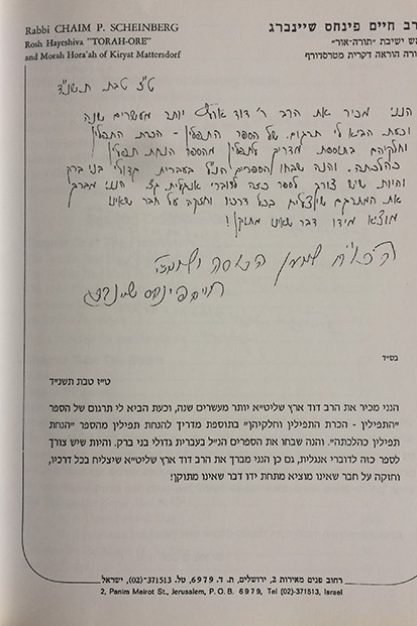 Rabbi CHAIM P. SCHEINBERG
Rosh Hayeshiva "TORAH-ORE"
and Morah Hora'ah of Kiryat Mattersdorf
רב חיים פינחס שיינברג
אש ישיבת "תורה-אור"
ורה הוראה דקרית מטרסדורף
ט"ז טבת תשנ"ד
הנני מכיר את הרב ר' דוד ארץ יותר מעשרים שנה
וכעת הביא לי תרגום של הספר התפילין - הכרת התפילין
וחלקיהם בתוספת מדריך לתפילין מהספר הנחת תפילין
כהלכתה. והנה שבחו הספרים הנ"ל בעברית גדולי בני ברק
והיות שיש צורך לספר כזה לדוברי אנגלית גם הנני מברך
את המתרגם שיצליח בכל דרכיו וחזקה על חבר שאינו
מוציא מידו דבר שאינו מתוקן!
חיים פינחס שיינברג
בס"ד
ט"ז טבת תשנ"ד
הנני מכיר את הרב דוד ארץ שליט"א יותר מעשרים שנה, וכעת הביא לי תרגום של הספר
"התפילין - הכרת התפילין וחלקיהן" בתוספת מדריך להנחת תפילין מהספר "הנחת
תפילין כהלכתה". והנה שבחו את הספרים הנ"ל בעברית גדולי בני ברק. והיות שיש צורך
לספר כזה לדוברי אנגלית, גם כן הנני מברך את הרב דוד ארץ שליט"א שיצליח בכל דרכיו,
וחזקה על חבר שאינו מוציא מתחת ידו דבר שאינו מתוקן!
רחוב פנים מאירות 2, ירושלים, ת. ד. 6979, טל. 371513-(02), ישראל
2, Panim Meirot St., Jerusalem, P.O.B. 6979, Tel (02)-371513, Israel